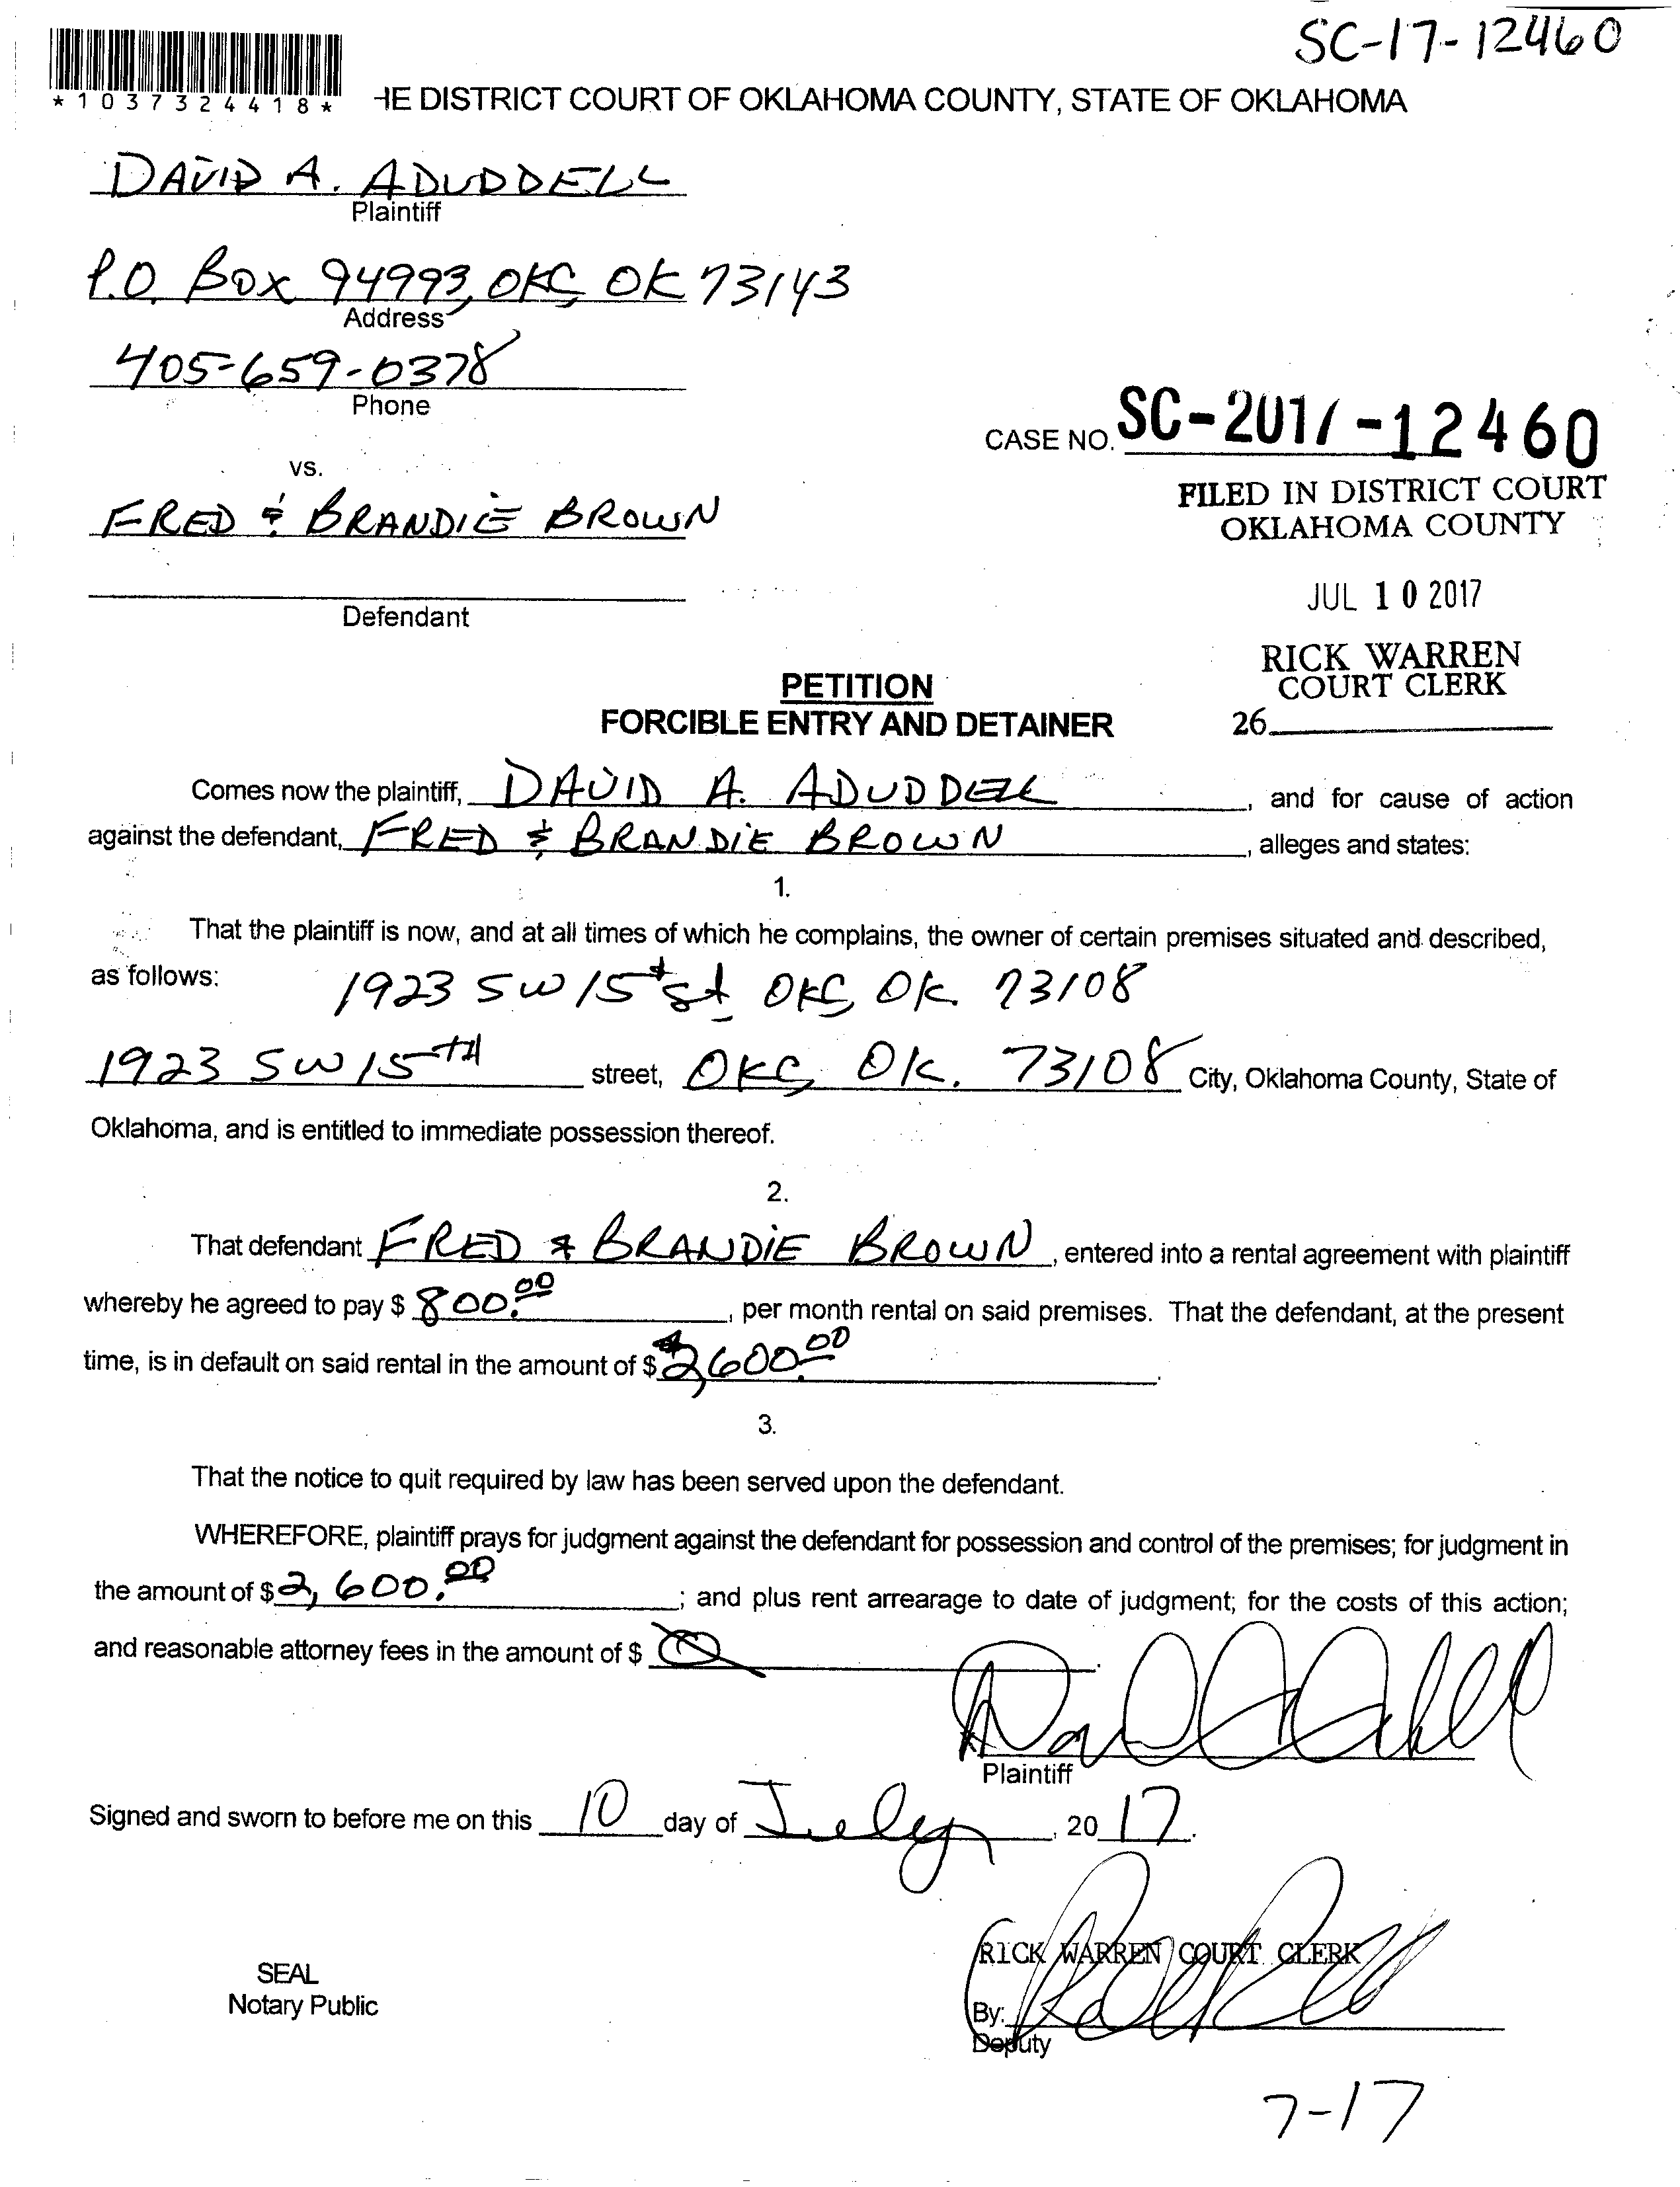 SC-17-12460
*1037324418*
HE DISTRICT COURT OF OKLAHOMA COUNTY, STATE OF OKLAHOMA
DAVID A. ADUDDELL
Plaintiff
P.O. Box 94993, OKC, OK 73143
Address
405-659-0378
Phone
CASE NO. SC-2017-12460
vs.
FILED IN DISTRICT COURT
OKLAHOMA COUNTY
FRED & BRANDIE BROWN
JUL 10 2017
Defendant
RICK WARREN
COURT CLERK
26
PETITION
FORCIBLE ENTRY AND DETAINER
Comes now the plaintiff, DAVID A. ADUDDELL, and for cause of action
against the defendant, FRED & BRANDIE BROWN, alleges and states:
1.
That the plaintiff is now, and at all times of which he complains, the owner of certain premises situated and described,
as follows: 1923 SW 15th St OKC, OK. 73108
1923 SW 15TH street, OKC, OK. 73108 City, Oklahoma County, State of
Oklahoma, and is entitled to immediate possession thereof.
2.
That defendant FRED & BRANDIE BROWN, entered into a rental agreement with plaintiff
whereby he agreed to pay $ 800.00, per month rental on said premises. That the defendant, at the present
time, is in default on said rental in the amount of $ $2,600.00.
3.
That the notice to quit required by law has been served upon the defendant.
WHEREFORE, plaintiff prays for judgment against the defendant for possession and control of the premises; for judgment in
the amount of $ 2,600.00; and plus rent arrearage to date of judgment; for the costs of this action;
and reasonable attorney fees in the amount of $ 0.
Plaintiff
Signed and sworn to before me on this 10 day of July, 2017.
RICK WARREN COURT CLERK
SEAL
Notary Public
By:
Deputy
7-17